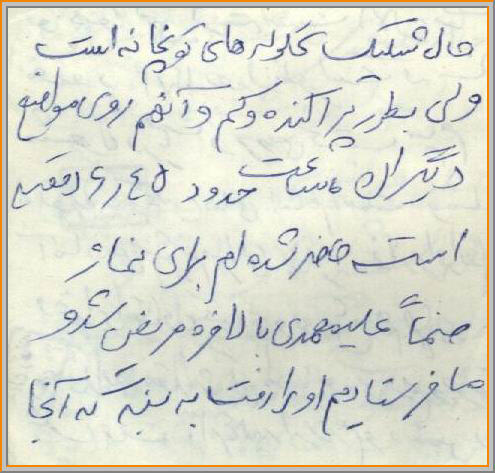 حال شلیک گلوله های توپخانه است
ولی بطور پراکنده و کم و آنهم روی مواضع
دیگران ساعت حدود ۶٫۴۵ دقیقه
است حاضر شده ام برای نماز
ضمناً علیمحمدی بالاخره مریض شد و
ما فرستادیم او را رفت به بنه که آنجا